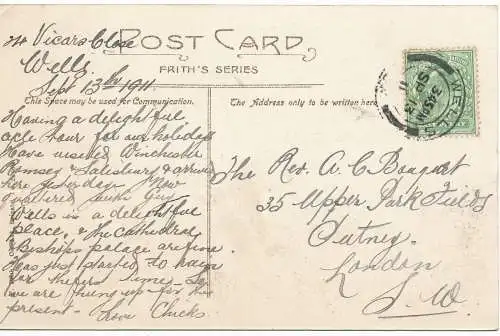 14 Vicars Close
Wells.
Sept 13th 1911.
POST CARD
FRITH'S SERIES
This Space may be used for Communication.
The Address only to be written here.
Having a delightful
cycle tour for our holidays
Have visited Winchester
Romsey & Salisbury & arrived
here yesterday. Now
quartered
Wells is a delightful
place, & the Cathedral
Bishops palace are fine.
Has just started to rain
for the first time - so
we are hung up for the
present - Love Chicks.
The Rev. A. C. Bouquet
35 Upper Park Fields
Putney
London
S. W.
WELLS
SP 13
11